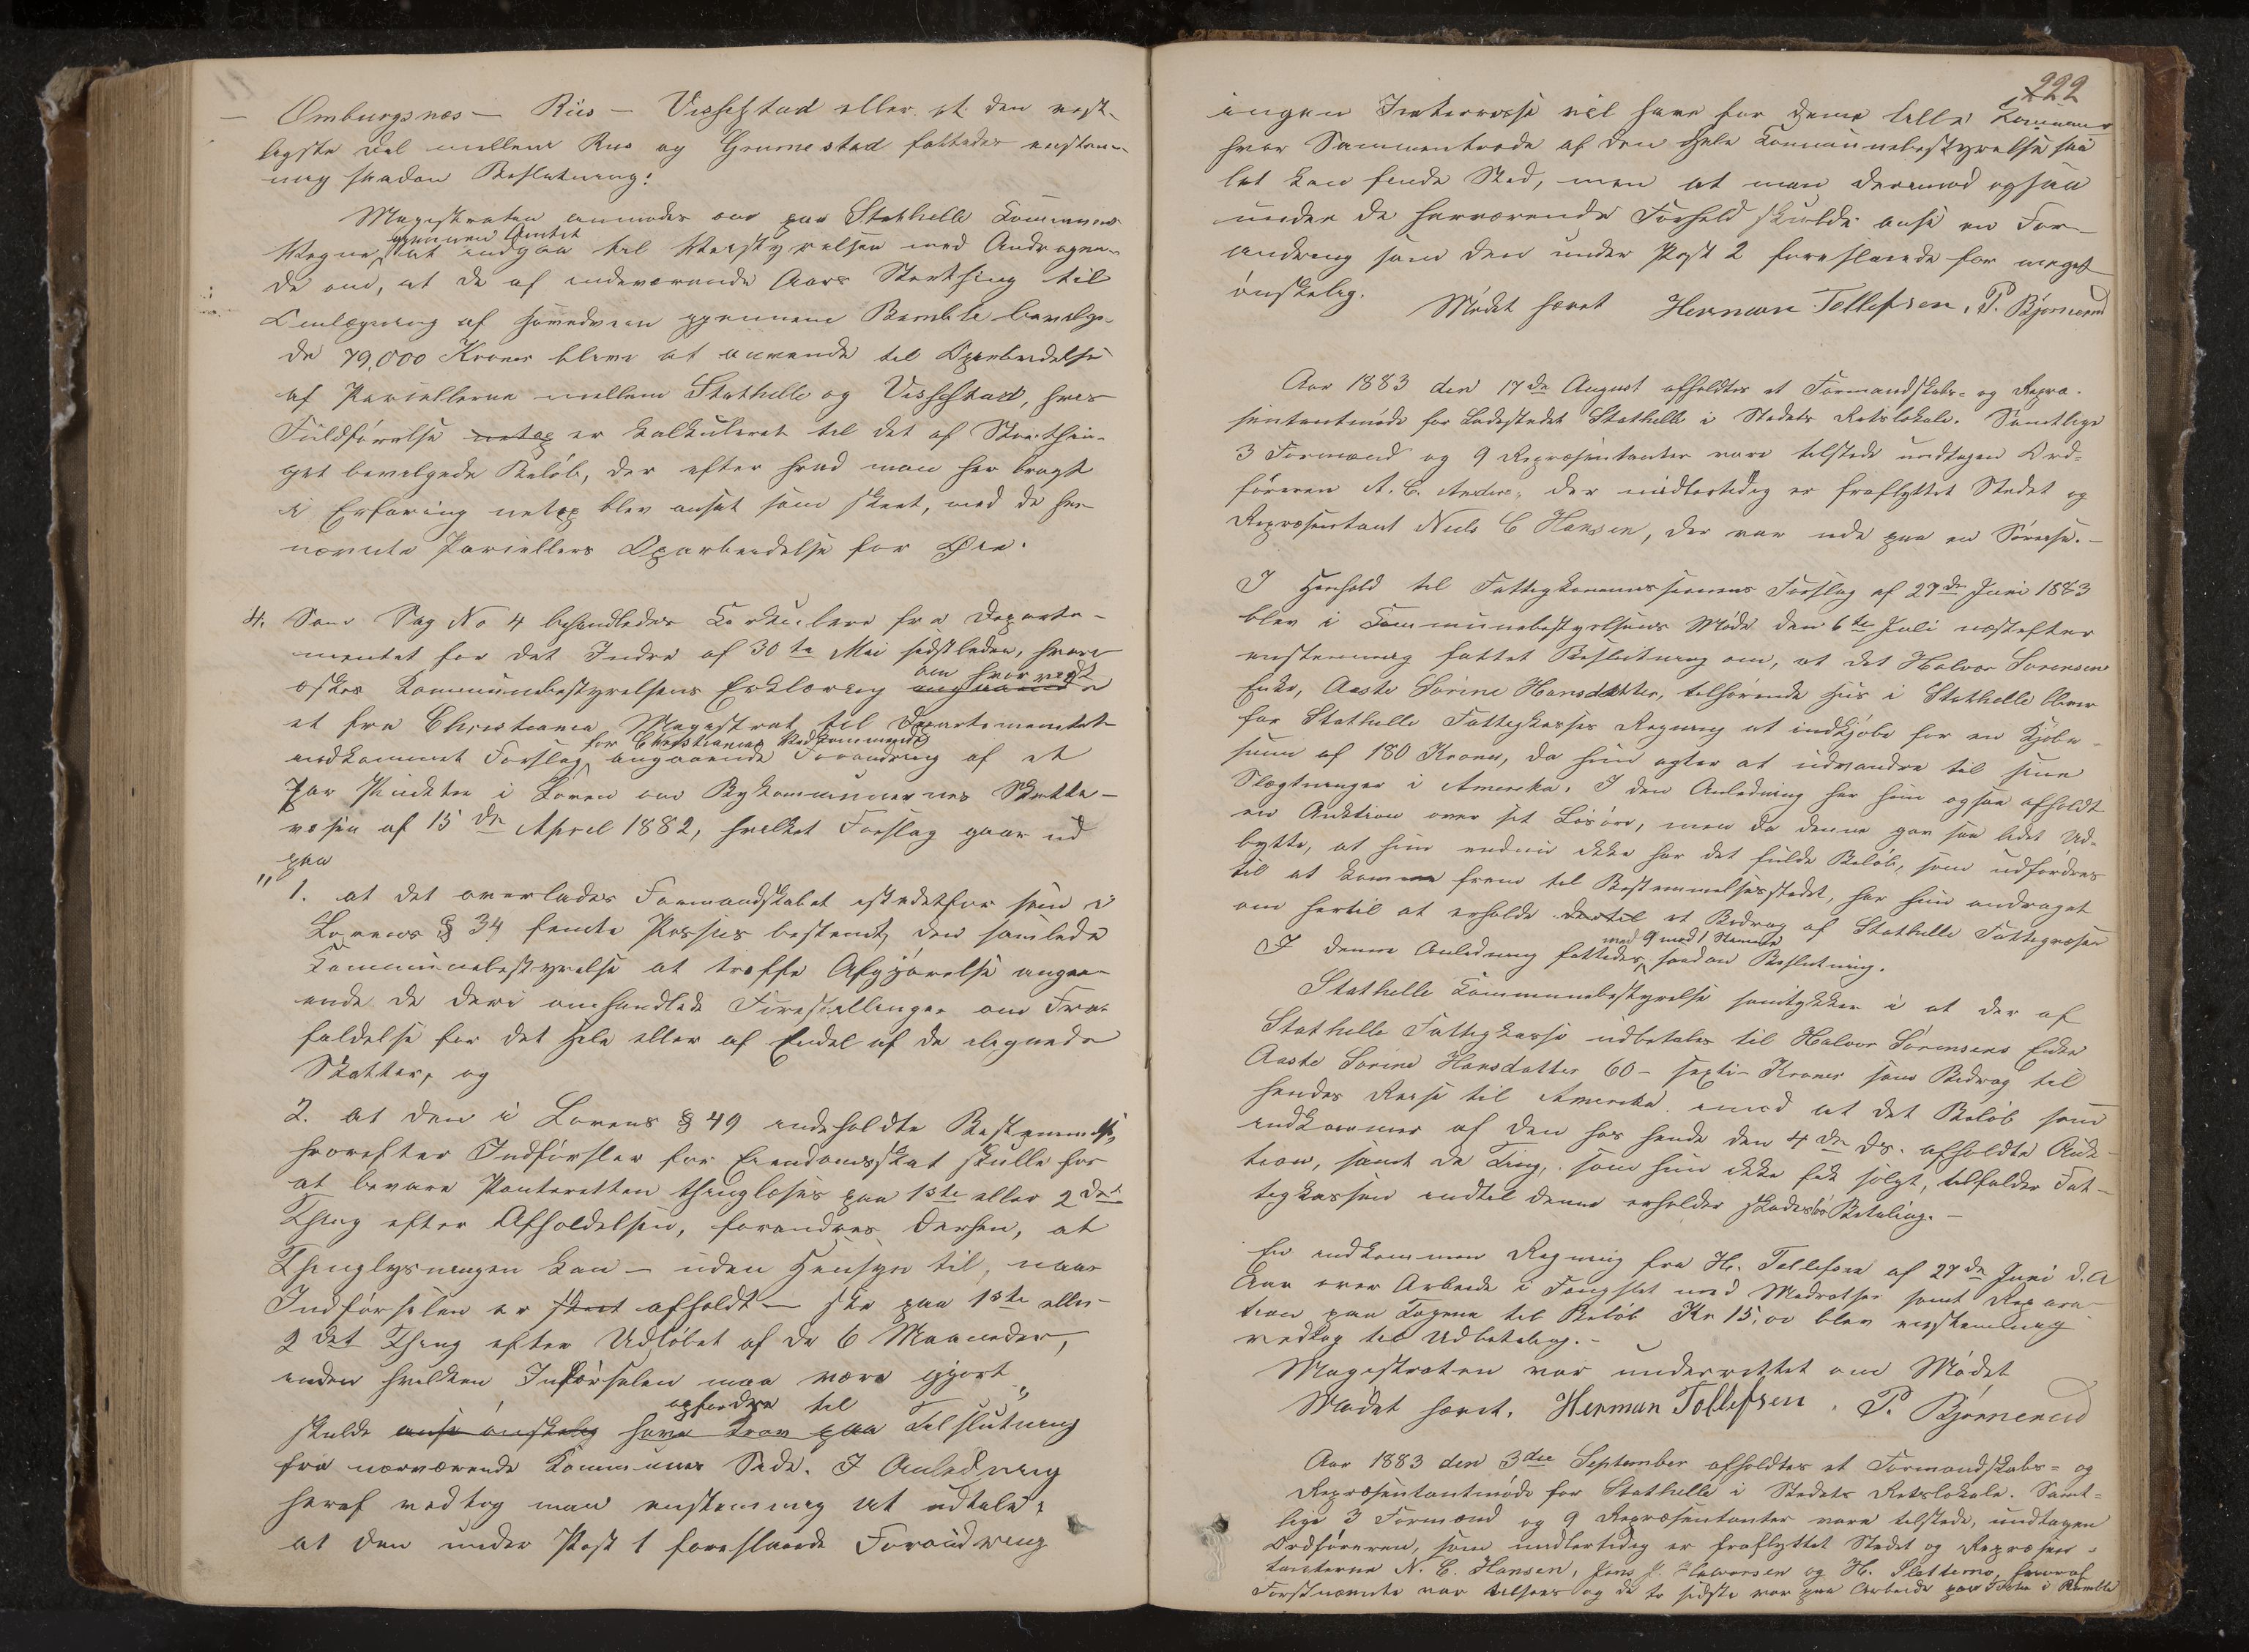 – Omburgsnes – Riis – Vissestad eller at den vest-
ligste Del mellem Riis og Grumestad fattedes enstem-
mig saadan Beslutning:
Magistraten anmodes om paa Stathelle Kommunes
Vegne gjennem Amtet at indgaa til Veistyrelsen med Andragen-
de om, at de af indeværende Aars Storthing til
Omlægning af Hovedveien gjennem Bamble bevilge-
de 79,000 Kroner bliver at anvende til Oparbeidelse
af Parcellerne mellem Stathelle og Vissestad, hvis
Fuldførelse netop er kalkuleret til det af Storthin-
get bevilgede Beløb, der efter hvad man har bragt
i Erfaring netop blev anset som skeet, med de her
nævnte Parcellers Oparbeidelse for Øie.
4. Som Sag No 4 behandledes Cirkulære fra Departe-
mentet for det Indre af 30te Mai sidstleden, hvori
æskes Kommunebestyrelsens Erklæring angaaende om hvorvidt
et fra Christiania Magistrat til Departementet
indkommet Forslag for Christianias Vedkommende angaaende Forandring af et
Par Punkter i Loven om Bykommunernes Skatte-
væsen af 15de April 1882, hvilket Forslag gaar ud
paa
" 1. at det overlades Formandskabet istedetfor som i
Lovens § 34 femte Passus bestemt, den samlede
Kommunebestyrelse at træffe Afgjørelse angaa-
ende de deri omhandlede Forestillinger om Fri-
faldelse for det Hele eller af Endel af de ilignede
Skatter, og
2. at den i Lovens § 49 indeholdte Bestemmelse,
hvorefter Indførsler for Eiendomsskat skulle for
at bevare Panteretten thinglæses paa 1ste eller 2det
Thing efter Afholdelsen, forandres derhen, at
Thinglysningen kan – uden Hensyn til, naar
Indførselen er skeet afholdt – ske paa 1ste eller
2det Thing efter Udløbet af de 6 Maaneder,
inden hvilken Indførselen maa være gjort"
skulde anse ønskelig have Krav paa opfordre til Tilslutning
fra nærværende Kommunes Side. I Anledning
heraf vedtog man enstemmig at udtale:
at den under Post 1 foreslaaede Forandring
222
ingen Interesse vil have for denne lille Kommune
hvor Sammentræde af den hele Kommunebestyrelse saa
let kan finde Sted, men at man derimod ogsaa
under de herværende Forhold skulde anse en For-
andring som den under Post 2 foreslaaede for meget
ønskelig.
Mødet hævet Herman Tollefsen. P. Bjørnerud
Aar 1883 den 17de August afholdtes et Formandskabs- og Repræ-
sentantmøde for Ladestedet Stathelle i Stedets Retslokale. Samtlige
3 Formænd og 9 Repræsentanter vare tilstede undtagen Ord-
føreren A. C. der midlertidig er fraflyttet Stedet og
Repræsentant Niels C Hansen, der var ude paa en Søreise. –
I Henhold til Fattigkommissionens Forslag af 27de Juni 1883
blev i Kommunebestyrelsens Møde den 6te Juli næstefter
enstemmig fattet Beslutning om, at det Halvor Sørensens
Enke, Aaste Sørine Hansdatter, tilhørende Hus i Stathelle bliver
for Stathelle Fattigkasses Regning at indkjøbe for en Kjøbe-
sum af 180 Kroner, da hun agter at udvandre til sine
Slægtninger i Amerika. I den Anledning har hun ogsaa afholdt
en Auktion over sit Løsøre, men da denne gav saa lidet Ud-
bytte, at hun endnu ikke har det fulde Beløb, som udfordres
til at komme frem til Bestemmelsesstedet, har hun andraget
om hertil at erholde dertil et Bidrag af Stathelle Fattigvæsen
I denne Anledning fattedes med 9 mod 1 Stemme saadan Beslutning.
Stathelle Kommunebestyrelse samtykker i at der af
Stathelle Fattigkasse udbetales til Halvor Sørensens Enke
Aaste Sørine Hansdatter 60 – sexti – Kroner som Bidrag til
hendes Reise til Amerika imod at det Beløb som
indkommer af den hos hende den 4de ds. afholdte Auk-
tion, samt de Ting, som hun ikke fik solgt, tilfalder Fat-
tigkassen indtil denne erholder skadesløs Betaling. –
En indkommen Regning fra H. Tollefsen af 27de Juni d. A
Aar over Arbeide i Fængslet med Madratser samt Repara-
tion paa Taget til Beløb Kr 15,00 blev enstemmig
vedtaget til Udbetaling. –
Magistraten var underrettet om Mødet
Mødet hævet. Herman Tollefsen. P. Bjørnerud
Aar 1883 den 3die September afholdtes et Formandskabs- og
Repræsentantmøde for Stathelle i Stedets Retslokale. Samt-
lige 3 Formænd og 9 Repræsentanter vare tilstede, undtagen
Ordføreren, som midlertidig er fraflyttet Stedet og Repræsen-
tanterne N. C. Hansen, Jens J. Halvorsen og H. Slettemo, hvoraf
Førstnævnte var tilsøes og de to sidste var paa Arbeide paa i Bamble